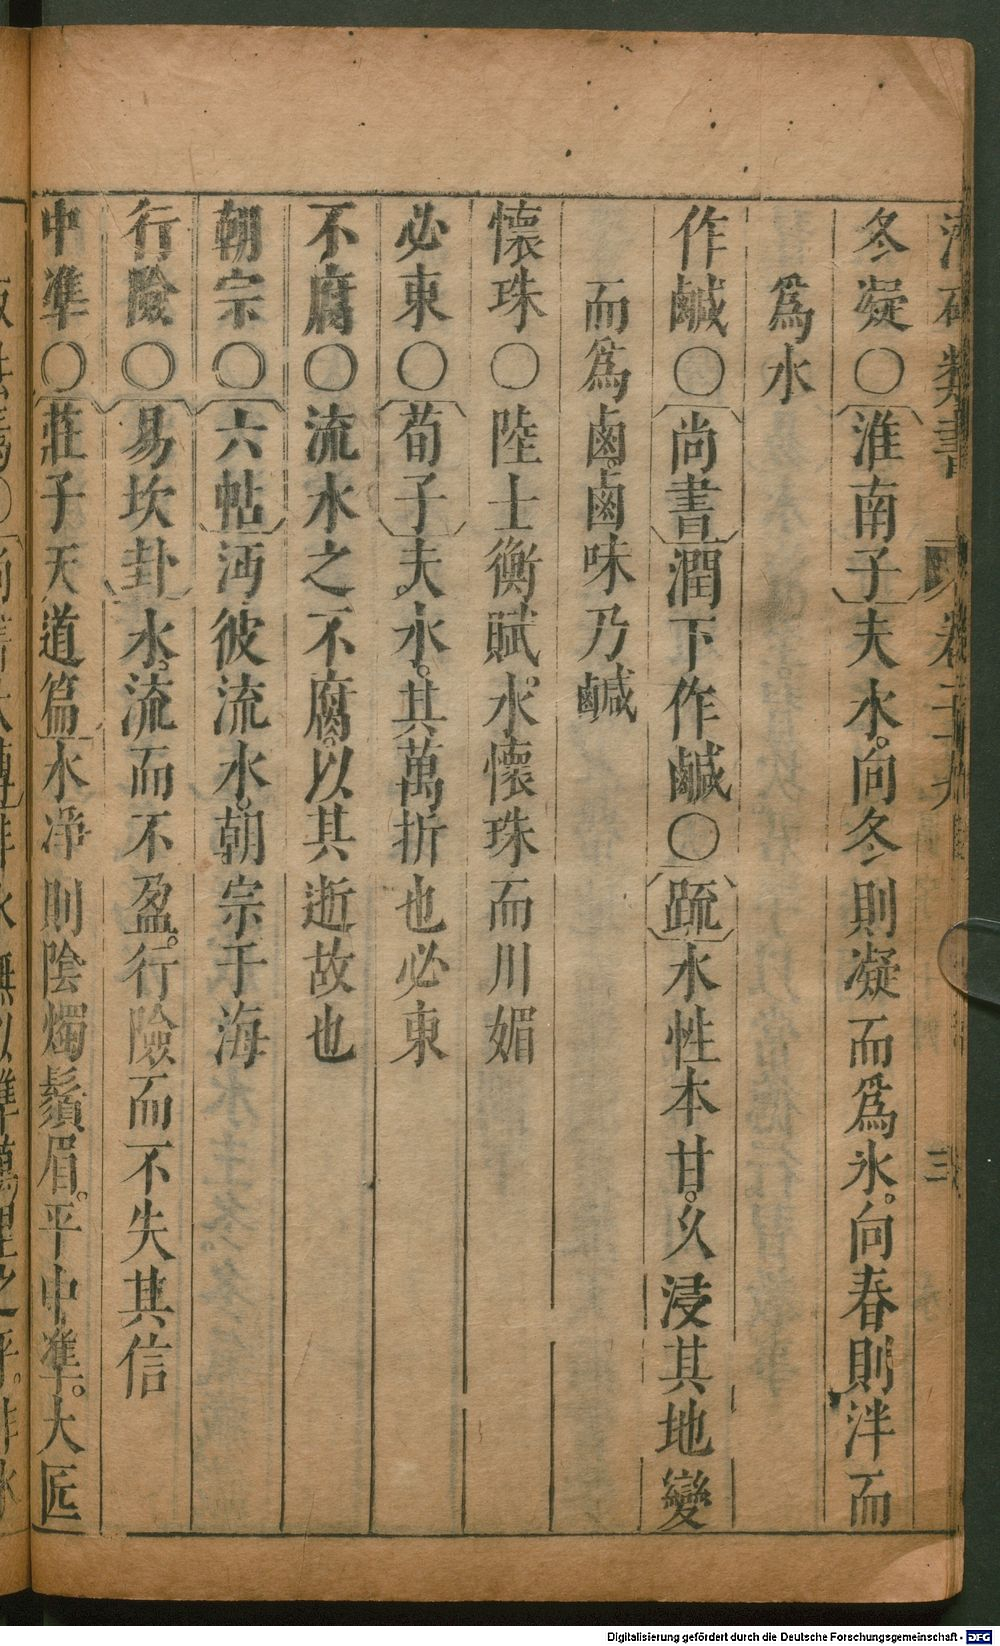 類書 卷二十九 三
冬凝○淮南子夫水。向冬則凝而爲氷。向春則泮而
爲水
作鹹○尚書潤下作鹹○疏水性本甘。久浸其地變
而爲鹵。鹵味乃鹹
懷珠○陸士衡賦。水懷珠而川媚
必東○荀子夫水。其萬折也必東
不腐○流水之不腐。以其逝故也
朝宗○六帖沔彼流水。朝宗于海
行險○易坎卦水。流而不盈。行險而不失其信
中準○莊子天道篇水淨則陰燭鬚眉。平中準。大匠
Digitalisierung gefördert durch die Deutsche Forschungsgemeinschaft - DFG